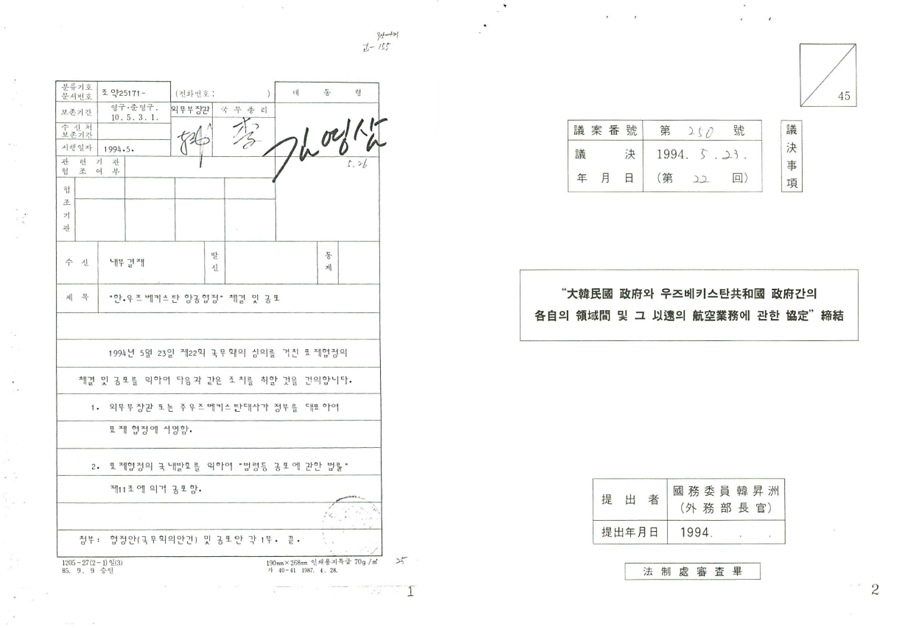 155
분류기호
문서번호
조약25171-
(전화번호: )
대 통 령
보존기간
영구·준영구.
10.5.3.1.
외무부장관
국 무 총 리
수 신 처
보존기간
시행일자
1994.5.
李
김영삼
5.26
관 련 기 관
협 조 여 부
협
조
기
관
수 신
내부결재
발
신
통
제
제 목
"한·우즈베키스탄 항공협정" 체결 및 공포
1994년 5월 23일 제22회 국무회의 심의를 거친 표제협정의
체결 및 공포를 위하여 다음과 같은 조치를 취할 것을 건의합니다.
1. 외무부장관 또는 주우즈베키스탄대사가 정부를 대표하여
표제 협정에 서명함.
2. 표제협정의 국내발효를 위하여 "법령등 공포에 관한 법률"
제11조에 의거 공포함.
첨부: 협정안(국무회의안건) 및 공포안 각 1부. 끝.
1205-27(2-1)일(3)
85. 9. 9 승인
190mm×268mm 인쇄용지특급 70g/㎡
가 40-41 1987. 4. 28.
25
1
45
議案番號
第 250 號
議 決
年 月 日
1994. 5. 23.
(第 22 回)
議
決
事
項
"大韓民國 政府와 우즈베키스탄共和國 政府간의
各自의 領域間 및 그 以遠의 航空業務에 관한 協定" 締結
提 出 者
國務委員韓昇洲
(外務部長官)
提出年月日
1994. . .
法制處審査畢
2